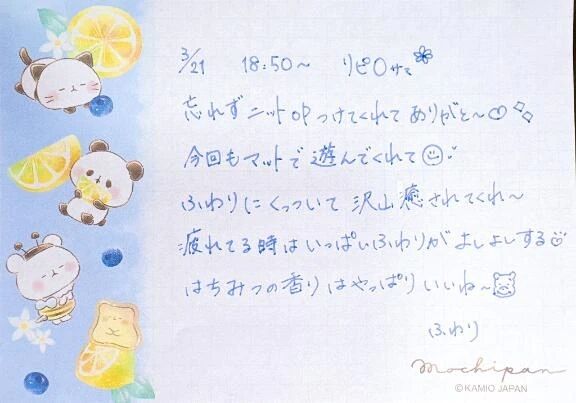 3/21 18:50〜 リピ〇サマ
忘れずニットopつけてくれてありがと〜♡
今回もマットで遊んでくれて
ふわりにくっついて沢山癒されてくれ〜
疲れてる時はいっぱいふわりがよしよしする
はちみつの香りはやっぱりいいね〜
ふわり
mochipan
©KAMIO JAPAN